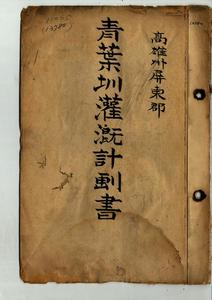 高雄州屏東郡
青葉圳灌漑計劃書
(13780)